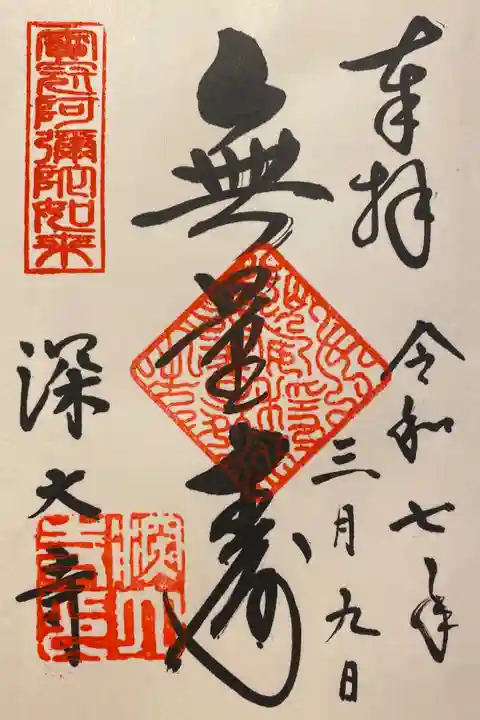 奉拝
令和七年
三月九日
無量壽
寳冠阿彌陀如来
深大寺